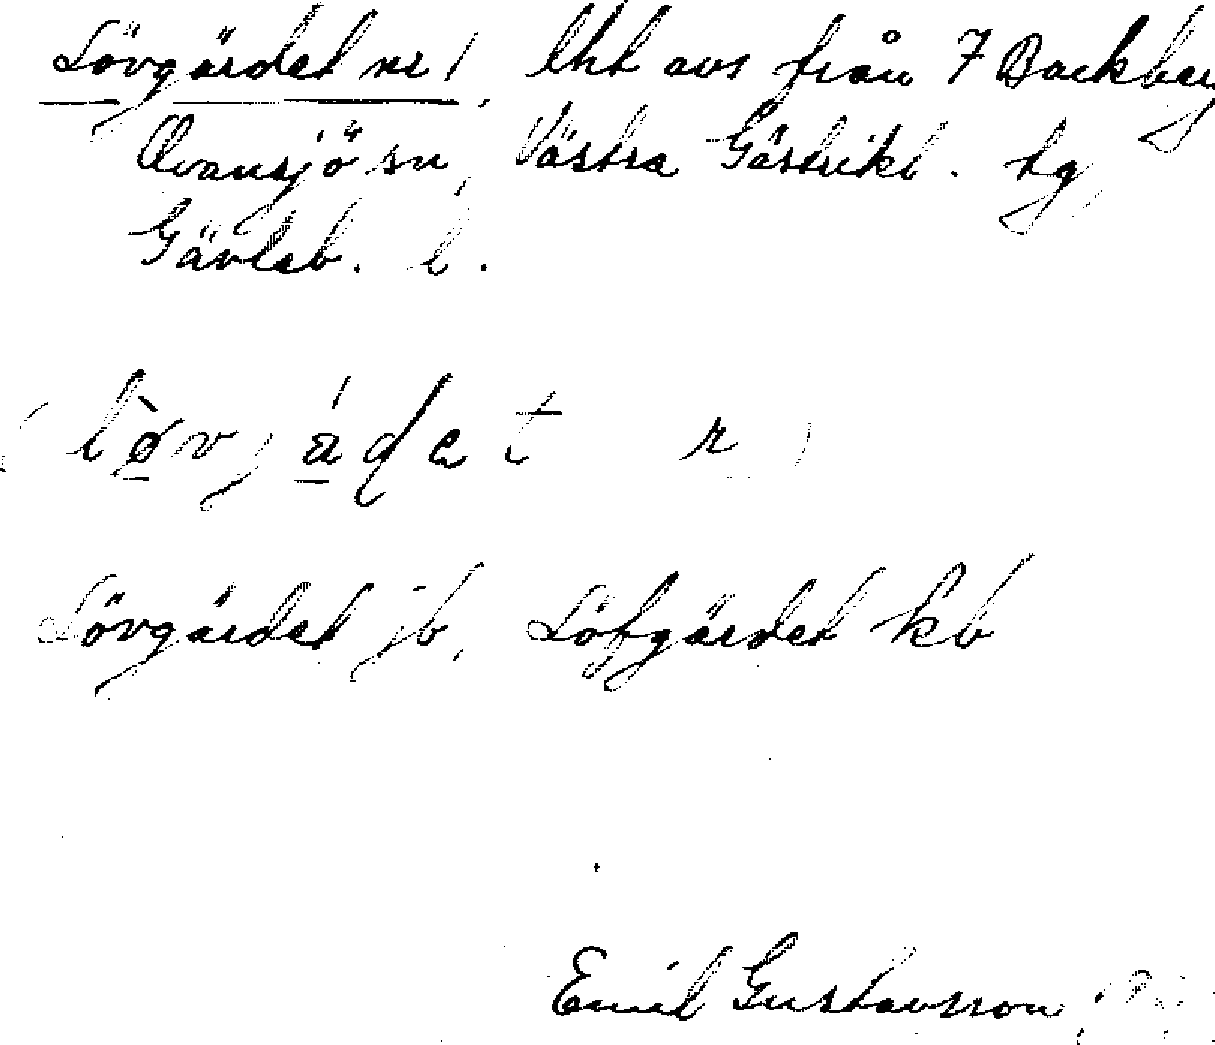 Lövgärdet nr 1, lht avs från 7 Backberg
Ovansjö sn, Västra Gästrikl. tg,
Gävleb. l.
Lövgärdet jb, Löfgärdet kb
Emil Gustavsson